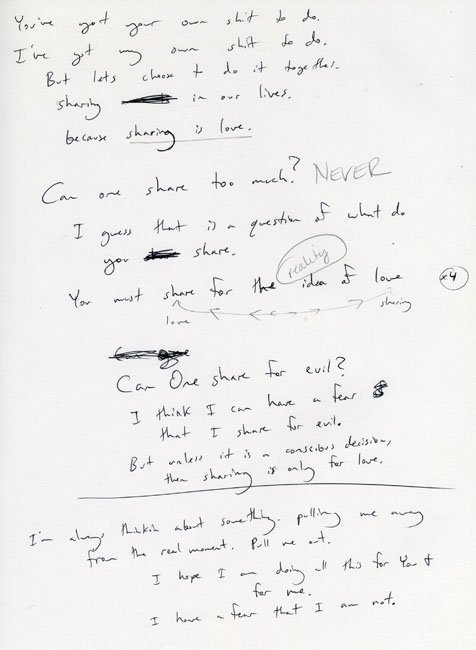 You've got your own shit to do.
I've got my own shit to do.
But lets choose to do it together.
sharing in our lives.
because sharing is love.
Can one share too much? NEVER
I guess that is a question of what do
you share.
reality
You must share for the idea of love x4
love sharing
Can One share for evil?
I think I can have a fear
that I share for evil.
But unless it is a conscious decision,
then sharing is only for love.
I'm always thinkin about something. pulling me away
from the real moment. Pull me out.
I hope I am doing all this for You &
for me.
I have a fear that I am not.